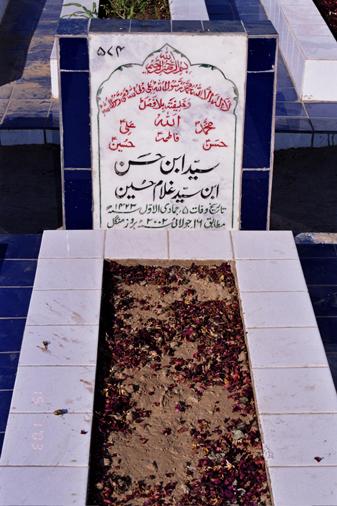 ۵۷۴
بسم اللہ الرحمن الرحیم
لا الہ الا اللہ محمد رسول اللہ علی ولی اللہ وصی رسول اللہ
وخلیفتہ بلا فصل
محمدؐ اللہ علیؑ
حسنؑ فاطمہؑ حسینؑ
سید ابن حسن
ابن سید غلام حسین
تاریخ وفات ۵، جمادی الاول ۱۴۲۳ھ
مطابق ۱۶ جولائی ۲۰۰۲ء بروز منگل